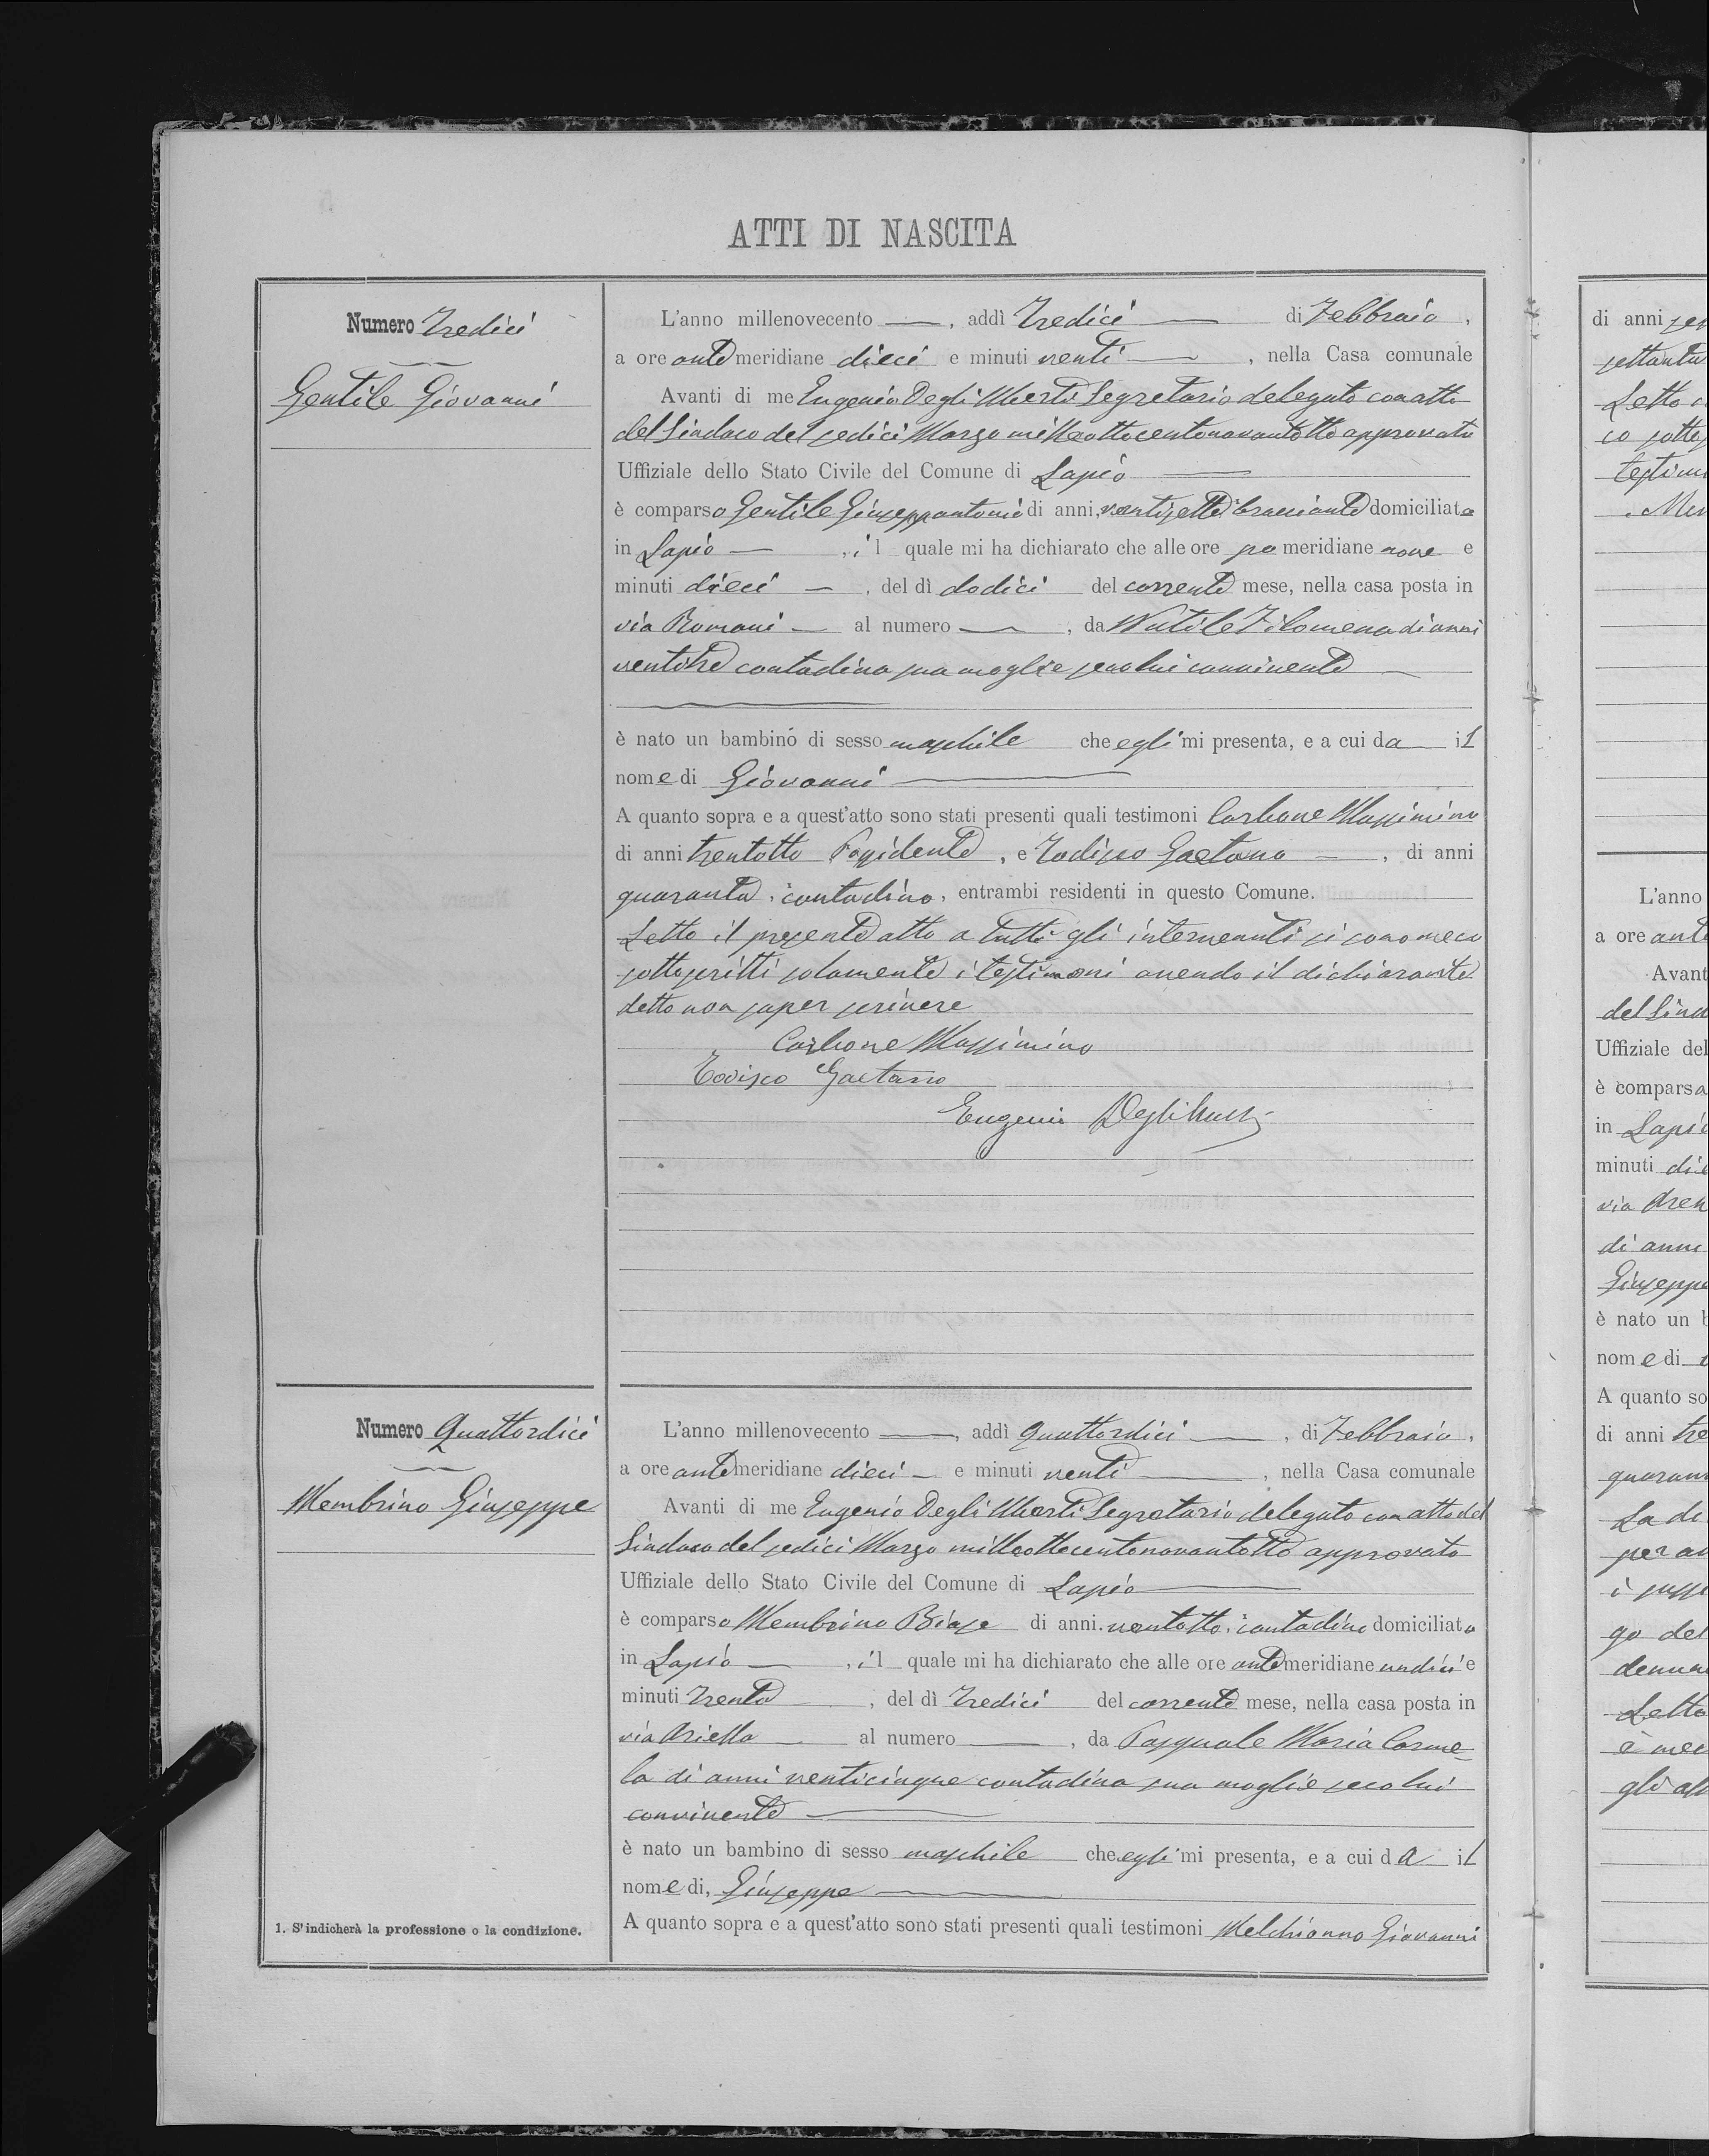 ATTI DI NASCITA
Numero Tredici
Gentile Giovanni
L'anno millenovecento —, addì Tredici — di Febbraio,
a ore antemeridiane dieci e minuti venti —, nella Casa comunale
Avanti di me Eugenio Degli Uberti Segretario delegato con atto
del Sindaco del sedici Marzo milleottocentonovantotto approvato
Uffiziale dello Stato Civile del Comune di Lapio —
è comparso Gentile Giuseppantonio di anni ventisette, bracciante domiciliato
in Lapio —, il quale mi ha dichiarato che alle ore pomeridiane nove e
minuti dieci —, del dì dodici del corrente mese, nella casa posta in
via Romani — al numero —, da Nutile Filomena di anni
ventitre contadina sua moglie seco lui convivente —
è nato un bambino di sesso maschile che egli mi presenta, e a cui da il
nome di Giovanni —
A quanto sopra e a quest'atto sono stati presenti quali testimoni Carbone Massimino
di anni trentotto Possidente, e Todisco Gaetano —, di anni
quaranta, contadino, entrambi residenti in questo Comune.
Letto il presente atto a tutti gli intervenuti si sono meco
sottoscritti solamente i testimoni avendo il dichiarante
detto non saper scrivere
Carbone Massimino
Todisco Gaetano
Eugenio Degli Uberti
Numero Quattordici
Membrino Giuseppe
L'anno millenovecento —, addì Quattordici —, di Febbraio,
a ore antemeridiane dieci — e minuti venti —, nella Casa comunale
Avanti di me Eugenio Degli Uberti Segretario delegato con atto del
Sindaco del sedici Marzo milleottocentonovantotto approvato
Uffiziale dello Stato Civile del Comune di Lapio —
è comparso Membrino Biase di anni ventotto, contadino domiciliato
in Lapio —, il quale mi ha dichiarato che alle ore antemeridiane undici e
minuti trenta —, del dì tredici del corrente mese, nella casa posta in
via Ariella — al numero —, da Pasquale Maria Carme-
la di anni venticinque contadina sua moglie seco lui
convivente —
è nato un bambino di sesso maschile che egli mi presenta, e a cui da il
nome di, Giuseppe —
A quanto sopra e a quest'atto sono stati presenti quali testimoni Melchionno Giovanni
1. S'indicherà la professione o la condizione.
di anni
settanta
Letto
co
. Men
L'anno
a ore ante
Avant
del Sind
Uffiziale del
è comparsa
in Lapio
minuti die
via
di anni
Giuseppe
è nato un b
nome di
A quanto so
di anni tre
quaran
La di
per
go del
Letto
è mec
gli